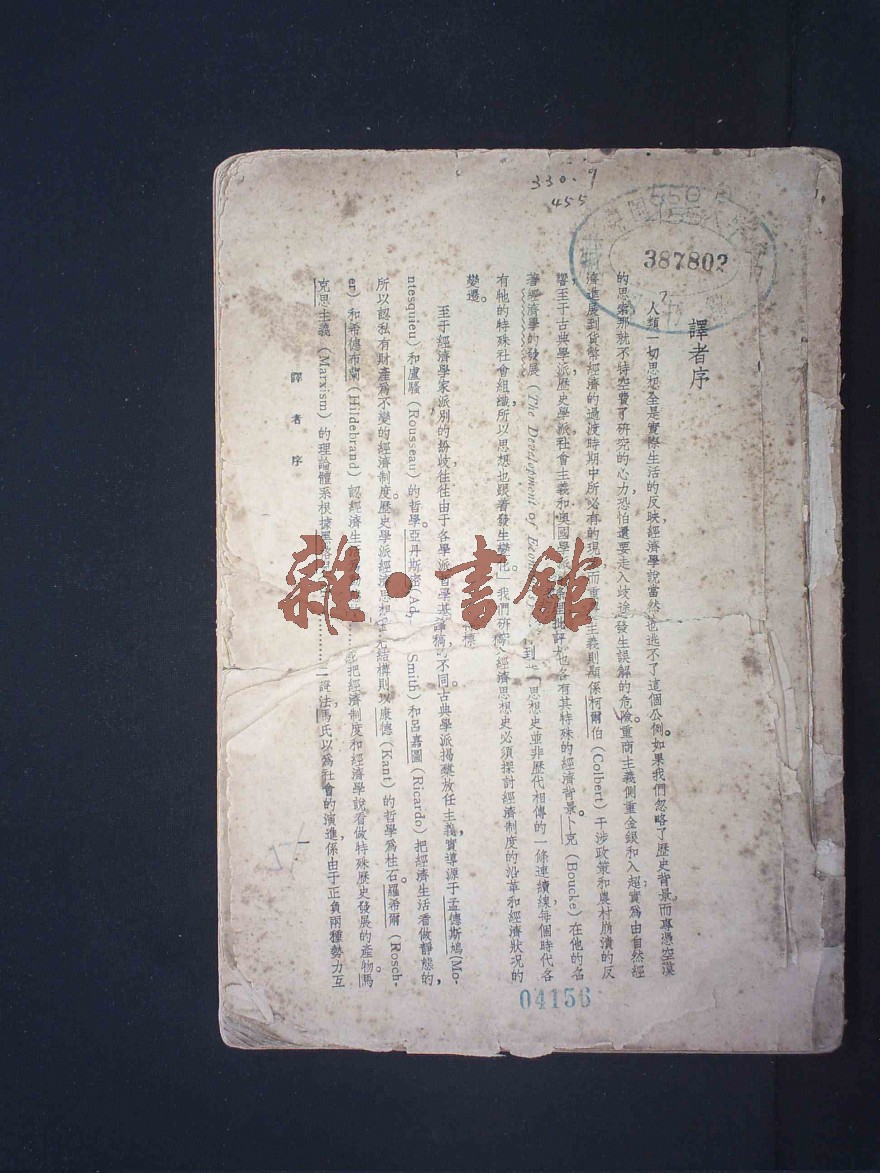 330.9
455
387802
譯者序
人類一切思想全是實際生活的反映，經濟學說當然也逃不了這個公例。如果我們忽略了歷史背景，而專憑空漠
的思索，那就不特空費了研究的心力，恐怕還要走入歧途，發生誤解的危險。重商主義側重金銀和入超，實為由自然經
濟進展到貨幣經濟的過渡時期中所必有的現，而重主義則顯係柯爾伯（Colbert）干涉政策和農村崩潰的反
響。至于古典學派，歷史學派，社會主義和奧國學派，也各有其特殊的經濟背景。卜克（Boucke）在他的名
著經濟學的發展（The Development of 到：「思想史並非歷代相傳的一條連續線，每個時代各
有牠的特殊社會組織，所以思想也跟着發生變化。」我們研究經濟思想史，必須探討經濟制度的沿革和經濟狀況的
變遷。
至于經濟學家派別的紛歧，往往由于各學派哲學基不同。古典學派揭櫫放任主義，實導源于孟德斯鳩(Mo-
ntesquieu）和盧騷（Rousseau）的哲學。亞丹斯密(Ad. Smith）和呂嘉圖（Ricardo）把經濟生活看做靜態的，
所以認私有財產為不變的經濟制度。歷史學派經濟思想結構則以康德（Kant）的哲學為柱石。羅希爾（Rosch-
er）和希德布蘭（Hildebrand）認經濟生把經濟制度和經濟學說看做特殊歷史發展的產物。馬
克思主義（Marxism）的理論體系根據證法，馬氏以為社會的演進，係由于正負兩種勢力互
譯者序
一
04156
雜·書館